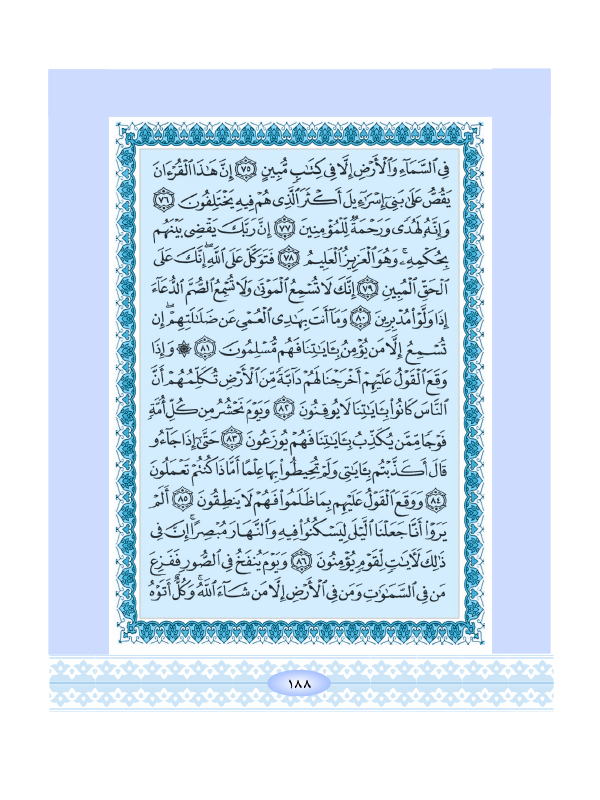 فِي السَّمَآءِ وَالْأَرْضِ إِلَّا فِي كِتَٰبٍ مُّبِينٍ ۝٧٥ إِنَّ هَٰذَا الْقُرْءَانَ
يَقُصُّ عَلَىٰ بَنِيٓ إِسْرَٰٓءِيلَ أَكْثَرَ الَّذِي هُمْ فِيهِ يَخْتَلِفُونَ ۝٧٦
وَإِنَّهُۥ لَهُدًى وَرَحْمَةٌ لِّلْمُؤْمِنِينَ ۝٧٧ إِنَّ رَبَّكَ يَقْضِي بَيْنَهُم
بِحُكْمِهِۦ ۚ وَهُوَ الْعَزِيزُ الْعَلِيمُ ۝٧٨ فَتَوَكَّلْ عَلَى اللَّهِ ۖ إِنَّكَ عَلَى
الْحَقِّ الْمُبِينِ ۝٧٩ إِنَّكَ لَا تُسْمِعُ الْمَوْتَىٰ وَلَا تُسْمِعُ الصُّمَّ الدُّعَآءَ
إِذَا وَلَّوْا مُدْبِرِينَ ۝٨٠ وَمَآ أَنتَ بِهَٰدِي الْعُمْيِ عَن ضَلَٰلَتِهِمْ ۖ إِن
تُسْمِعُ إِلَّا مَن يُؤْمِنُ بِـَٔايَٰتِنَا فَهُم مُّسْلِمُونَ ۝٨١ ۞ وَإِذَا
وَقَعَ الْقَوْلُ عَلَيْهِمْ أَخْرَجْنَا لَهُمْ دَآبَّةً مِّنَ الْأَرْضِ تُكَلِّمُهُمْ أَنَّ
النَّاسَ كَانُوا بِـَٔايَٰتِنَا لَا يُوقِنُونَ ۝٨٢ وَيَوْمَ نَحْشُرُ مِن كُلِّ أُمَّةٍ
فَوْجًا مِّمَّن يُكَذِّبُ بِـَٔايَٰتِنَا فَهُمْ يُوزَعُونَ ۝٨٣ حَتَّىٰٓ إِذَا جَآءُو
قَالَ أَكَذَّبْتُم بِـَٔايَٰتِي وَلَمْ تُحِيطُوا بِهَا عِلْمًا أَمَّاذَا كُنتُمْ تَعْمَلُونَ
۝٨٤ وَوَقَعَ الْقَوْلُ عَلَيْهِم بِمَا ظَلَمُوا فَهُمْ لَا يَنطِقُونَ ۝٨٥ أَلَمْ
يَرَوْا أَنَّا جَعَلْنَا الَّيْلَ لِيَسْكُنُوا فِيهِ وَالنَّهَارَ مُبْصِرًا ۚ إِنَّ فِي
ذَٰلِكَ لَءَايَٰتٍ لِّقَوْمٍ يُؤْمِنُونَ ۝٨٦ وَيَوْمَ يُنفَخُ فِي الصُّورِ فَفَزِعَ
مَن فِي السَّمَٰوَٰتِ وَمَن فِي الْأَرْضِ إِلَّا مَن شَآءَ اللَّهُ ۚ وَكُلٌّ أَتَوْهُ
١٨٨